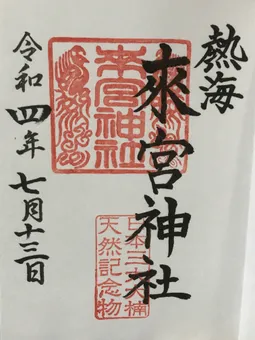 熱海
來宮神社
令和四年七月十三日
來宮神社
日本三大楠
天然記念物